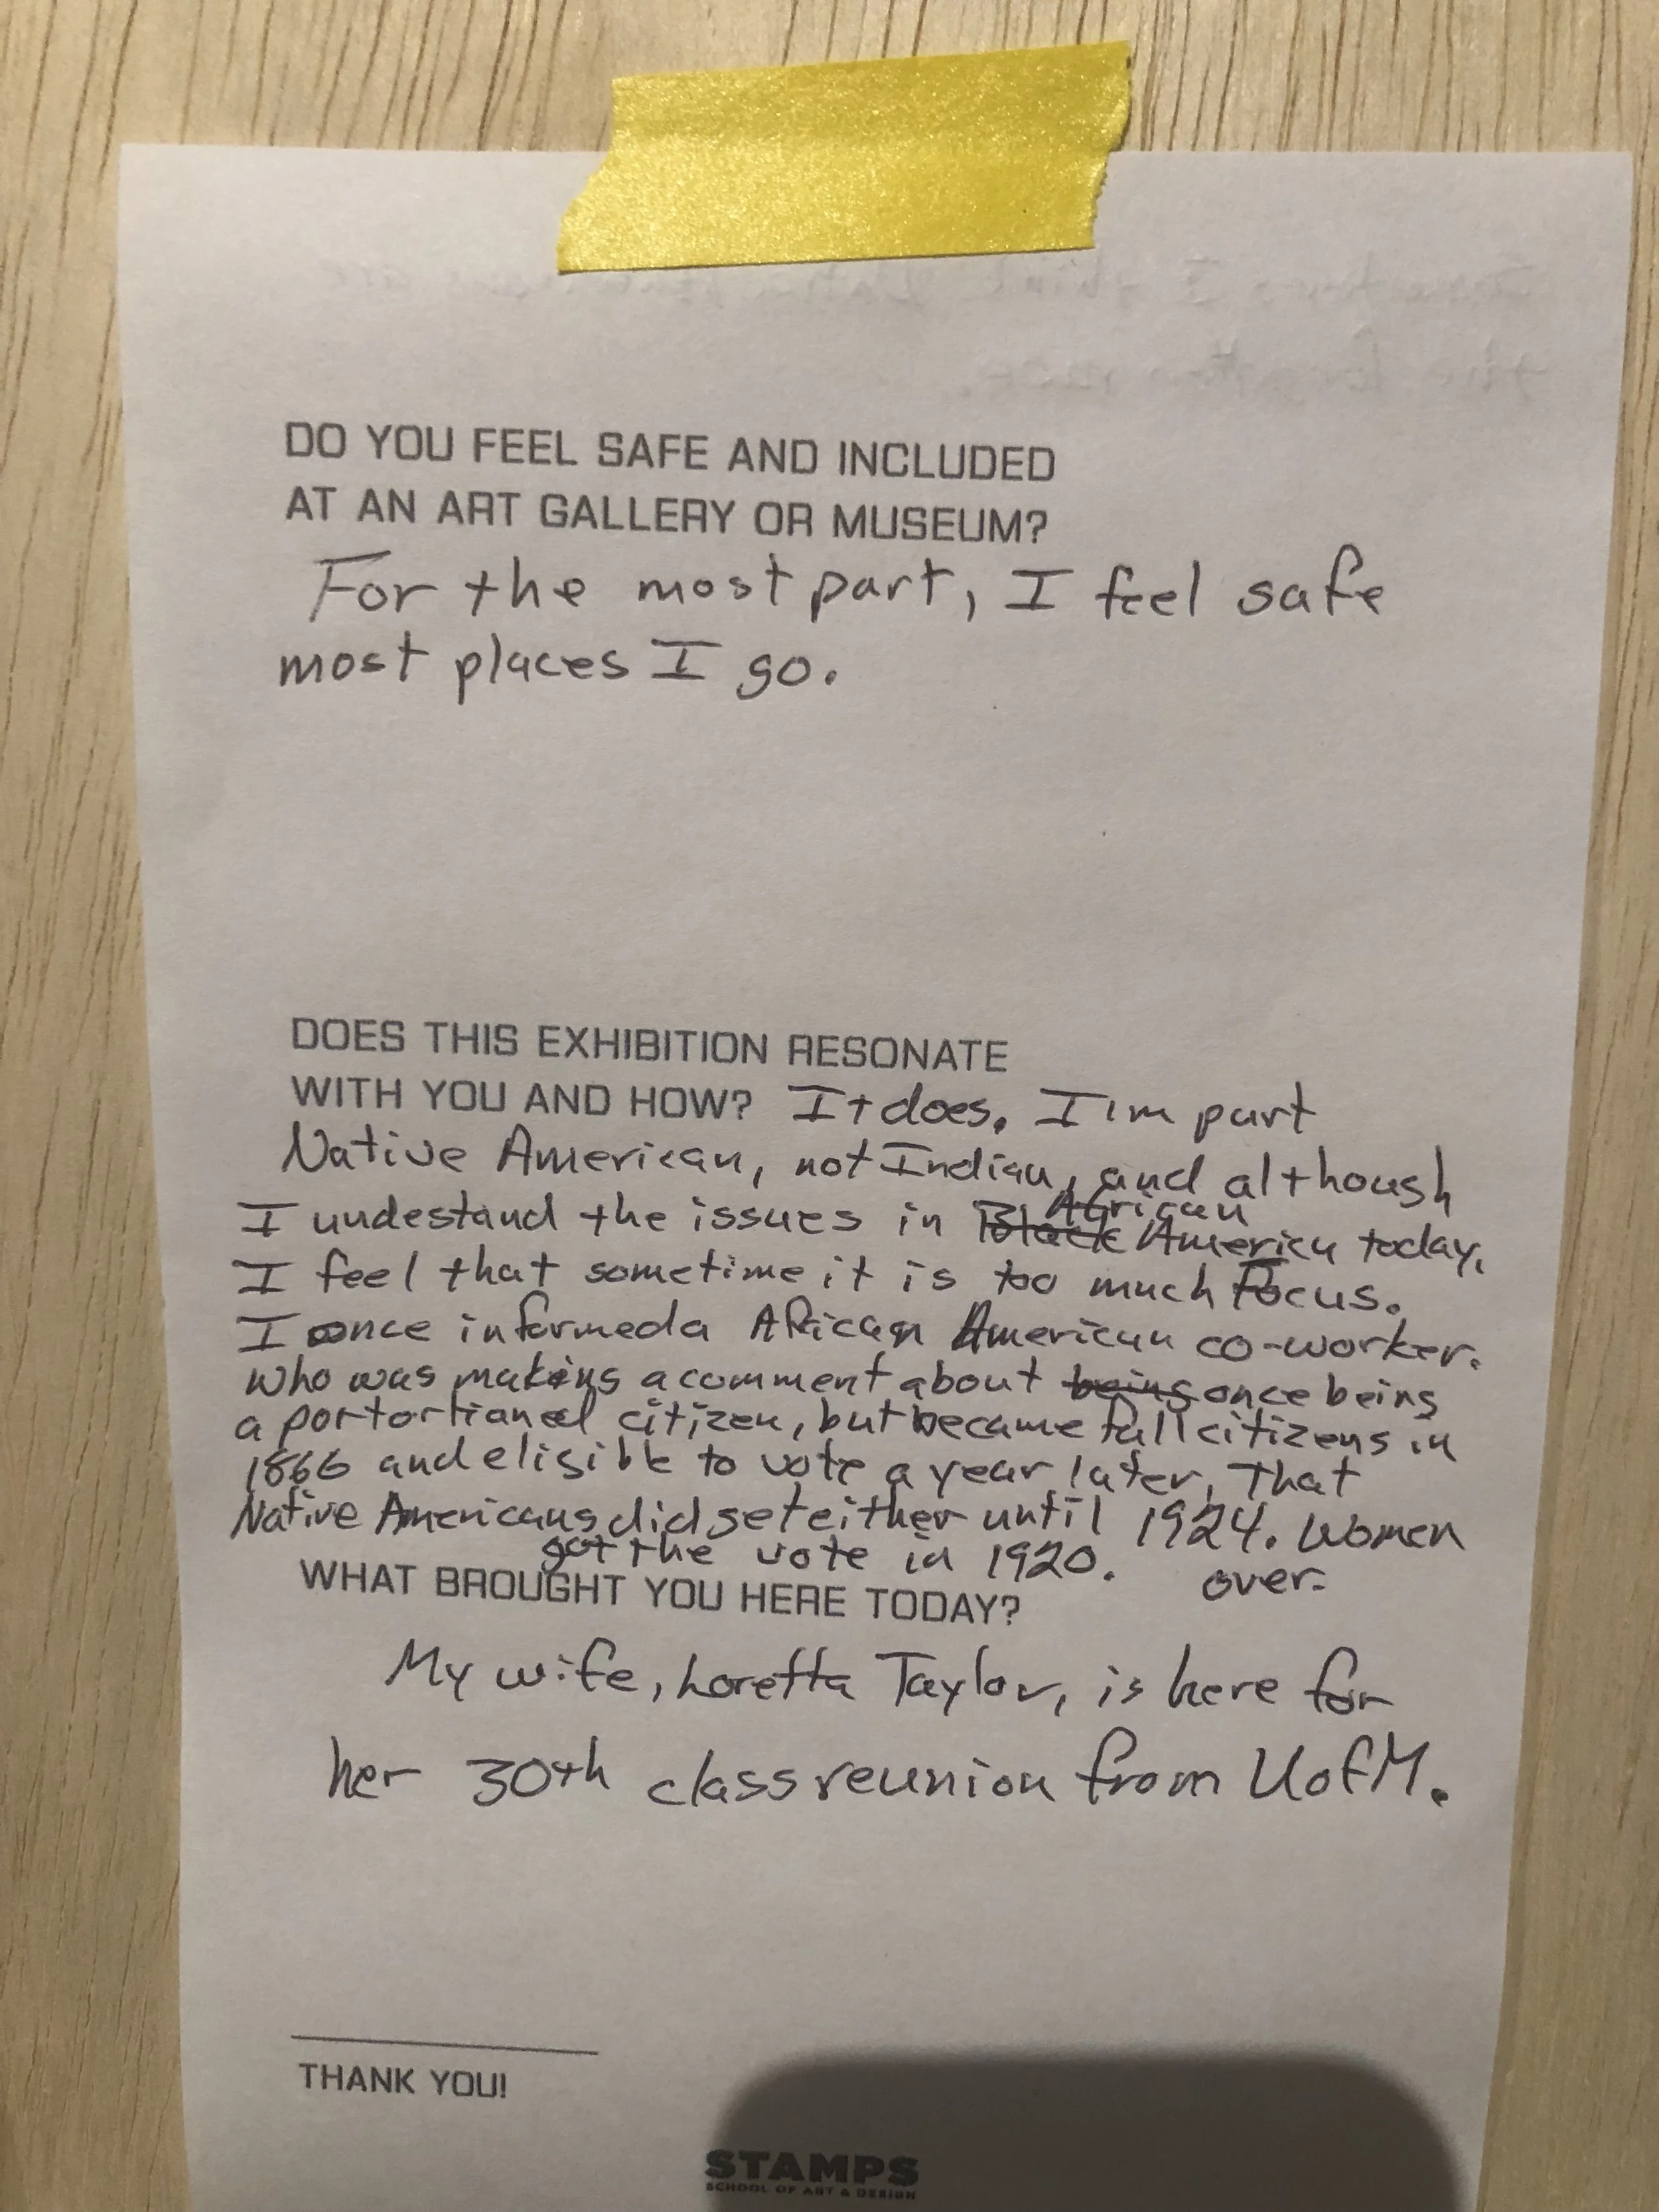 DO YOU FEEL SAFE AND INCLUDED
AT AN ART GALLERY OR MUSEUM?
For the most part, I feel safe
most places I go.
DOES THIS EXHIBITION RESONATE
WITH YOU AND HOW? It does. I'm part
Native American, not Indian, and although
I undestand the issues in Black African America today,
I feel that sometime it is too much Focus.
I once informed a African American co-worker.
who was making a comment about being once being
a portortianed citizen, but became full citizens in
1866 and eligible to vote a year later, That
Native Americans did get either until 1924. Women
got the vote in 1920. over-
WHAT BROUGHT YOU HERE TODAY?
My wife, Loretta Taylor, is here for
her 30th class reunion from UofM.
THANK YOU!
STAMPS
SCHOOL OF ART & DESIGN